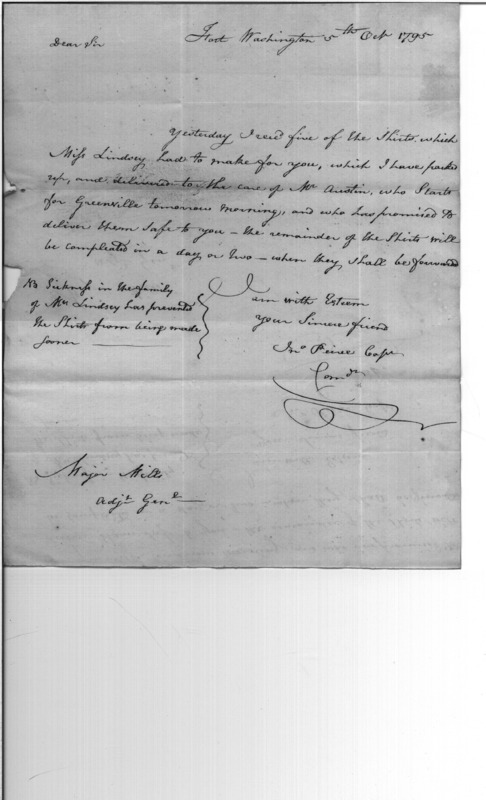 Fort Washington 5th Oct 1795
Dear Sir
Yesterday I recd five of the Shirts which
Miss Lindsey, had to make for you, which I have packed
up, and delivered to the care of Mr Austin, who Starts
for Greenville tomorrow morning, and who has promised to
deliver them Safe to you – the remainder of the Shirts will
be compleated in a day or two – when they shall be forward
I am with Esteem
your Sincere friend
Jno Peirce Capt
Comdr
NB Sickness in the family
of Mrs Lindsey has prevented
the Shirts from being made
sooner
Major Mills
Adjt Genl